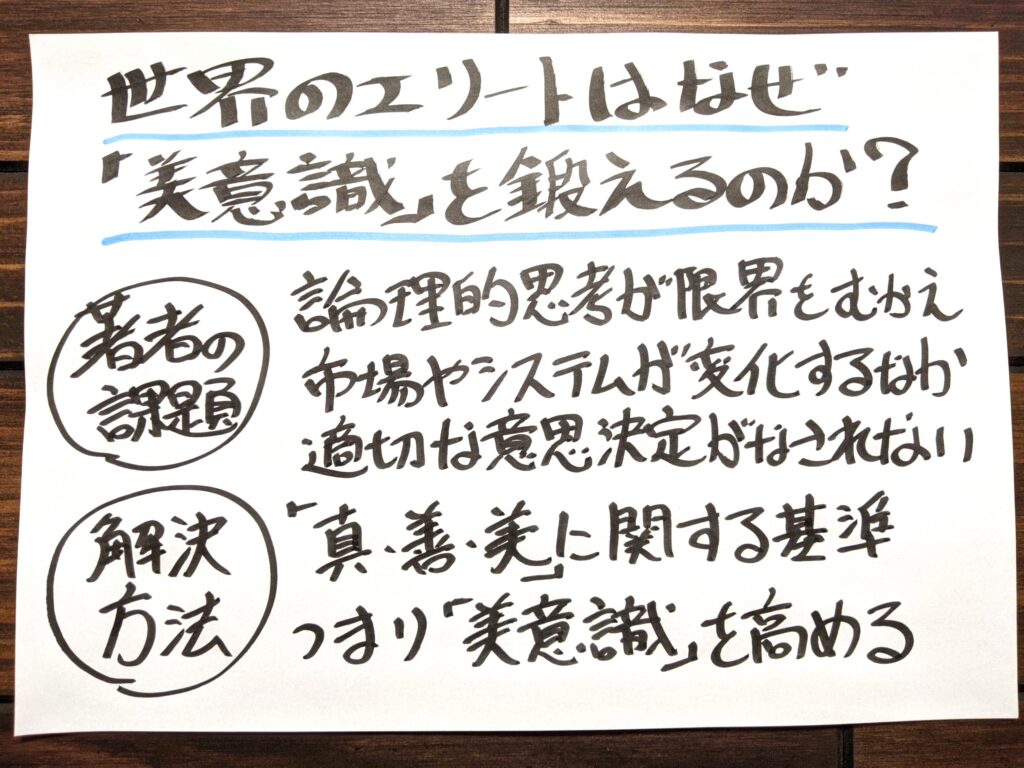 世界のエリートはなぜ
「美意識」を鍛えるのか?
著者の
課題
論理的思考が限界をむかえ
市場やシステムが変化するなか
適切な意思決定がなされない
解決
方法
「真・善・美」に関する基準
つまり「美意識」を高める